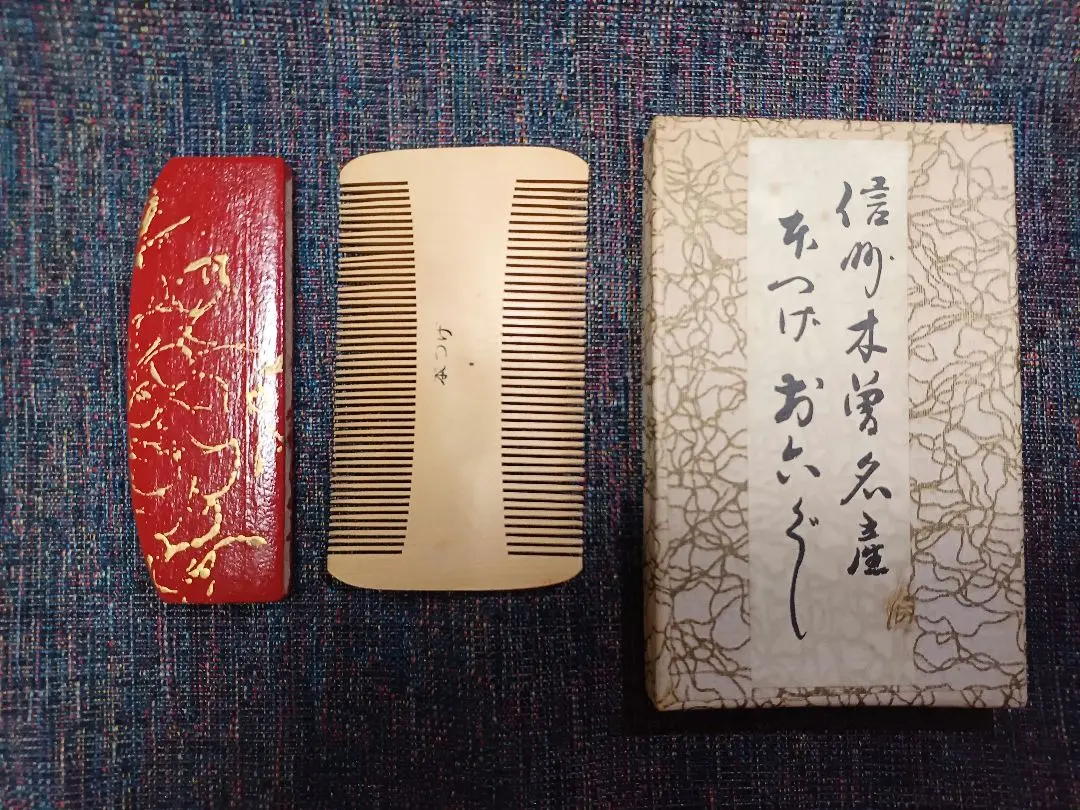 本つげ
信州木曽名産
本つげ お六ぐし